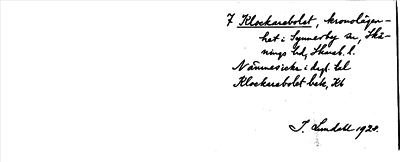 7 Klockarebolet, kronolägen-
het i Synnerby sn, Skå-
nings hd, Skarab. l.
Nämnes icke i
Klockarebolet
I. Lundahl 1920.